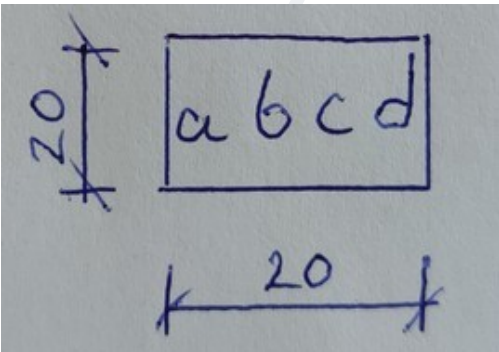 20
abcd
20